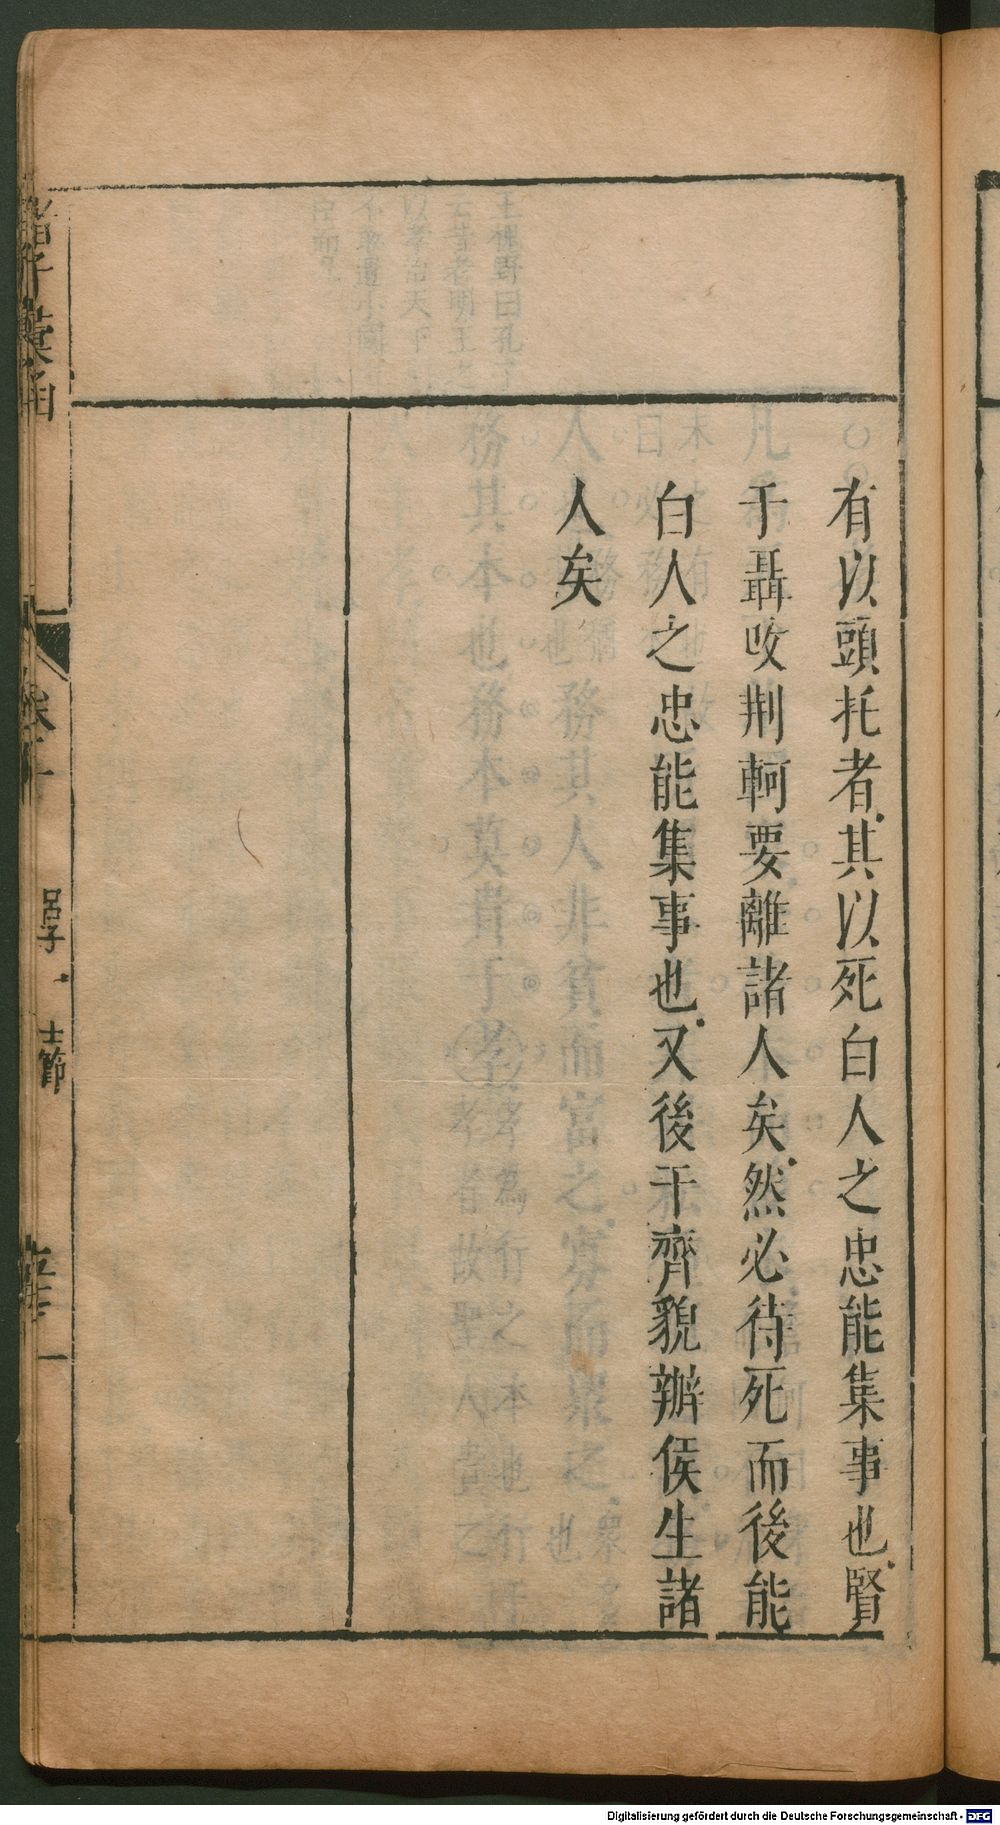 有以頭托者其以死白人之忠能集事也賢
于聶政荆軻要離諸人矣然必待死而後能
白人之忠能集事也又後于齊貌辦侯生諸
人矣
諸子彙函
呂子
士節
Digitalisierung gefördert durch die Deutsche Forschungsgemeinschaft - DFG